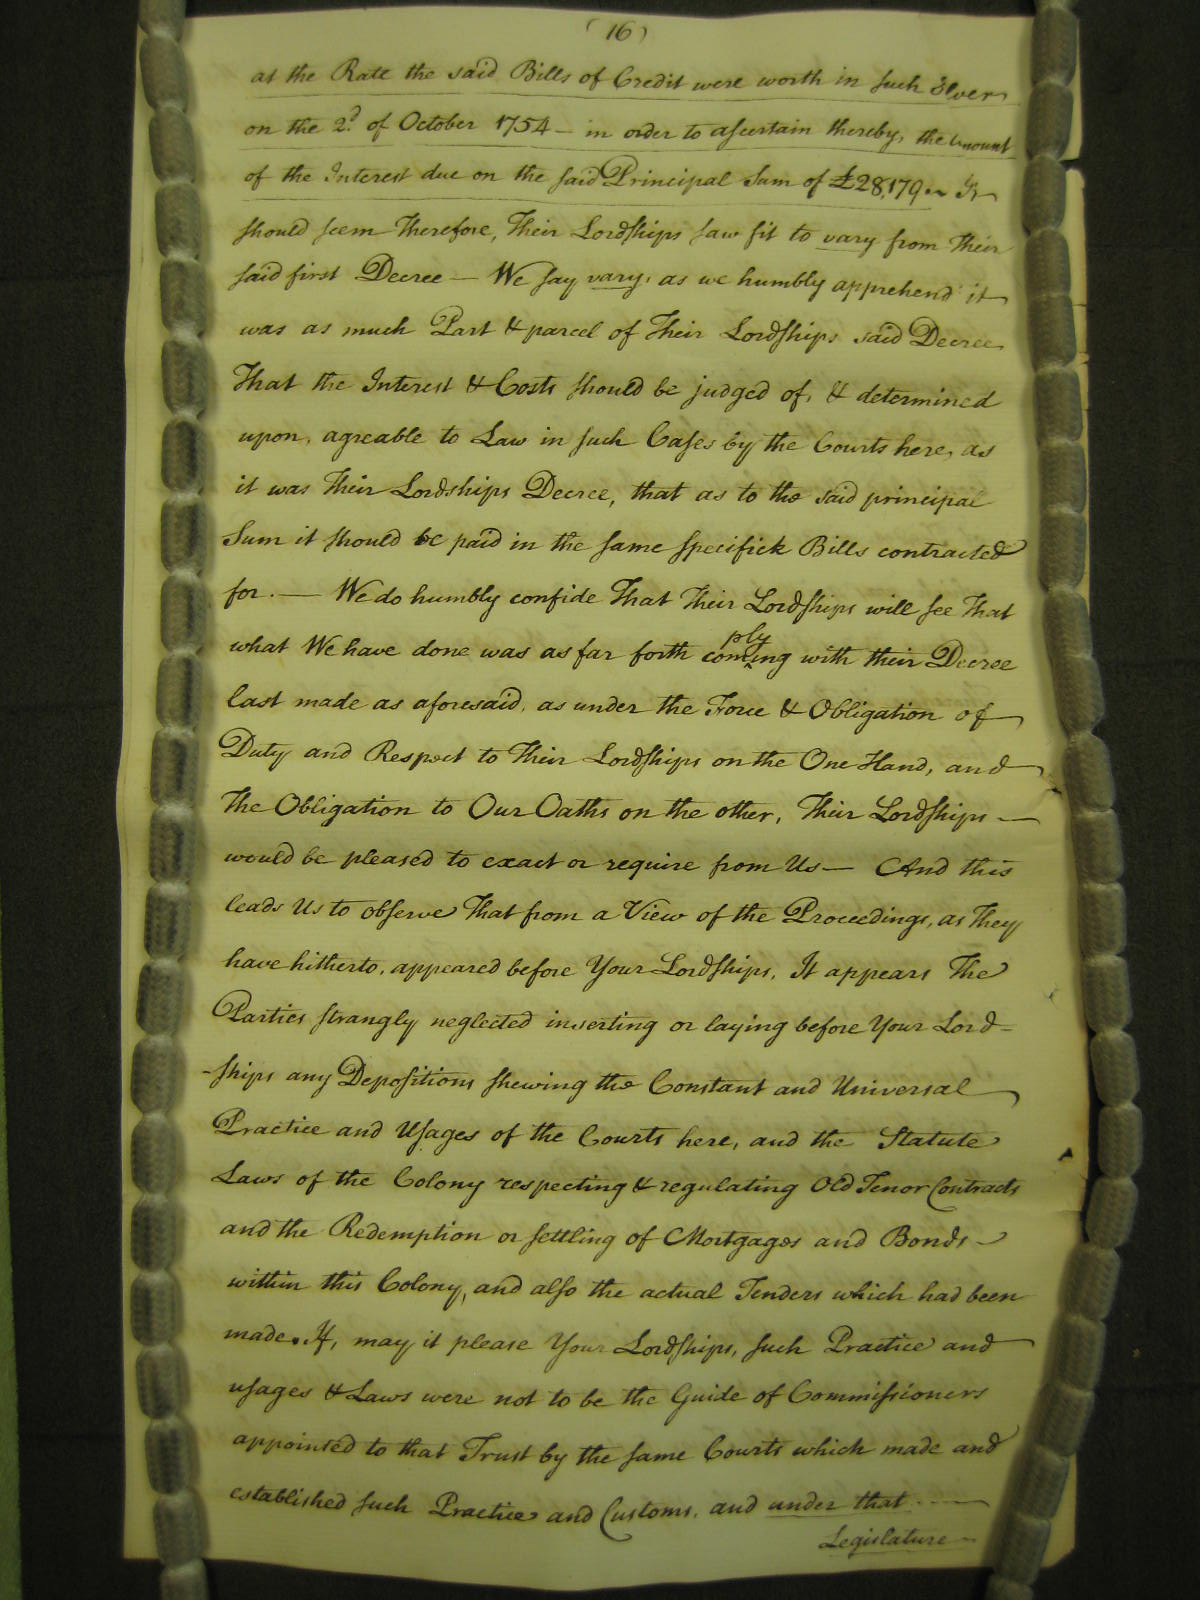 (16)
at the Rate the said Bills of Credit were worth in such Silver
on the 2d. of October 1754 — in order to ascertain thereby, the Amount
of the Interest due on the said Principal Sum of £28,179. — It
should seem therefore, Their Lordships saw fit to vary from their
said first Decree — We say vary, as we humbly apprehend it
was as much Part & parcel of Their Lordships said Decree
That the Interest & Costs should be judged of, & determined
upon, agreable to Law in such Cases by the Courts here, as
it was Their Lordships Decree, that as to the said principal
Sum it should be paid in the same specifick Bills contracted
for. — We do humbly confide That Their Lordships will see That
what We have done was as far forth complying with their Decree
last made as aforesaid, as under the Force & Obligation of
Duty and Respect to Their Lordships on the One Hand, and
the Obligation to Our Oaths on the other, Their Lordships —
would be pleased to exact or require from Us — And this
leads Us to observe That from a View of the Proceedings, as they
have hitherto, appeared before Your Lordships, It appears The
Parties strangly neglected inserting or laying before Your Lord-
-ships any Depositions shewing the Constant and Universal
Practice and Usages of the Courts here, and the Statute
Laws of the Colony respecting & regulating Old Tenor Contracts
and the Redemption or settling of Mortgages and Bonds —
within this Colony, and also the actual Tenders which had been
made. If, may it please Your Lordships, such Practice and
usages & Laws were not to be the Guide of Commissioners
appointed to that Trust by the same Courts which made and
established such Practice and Customs, and under that —
Legislature —